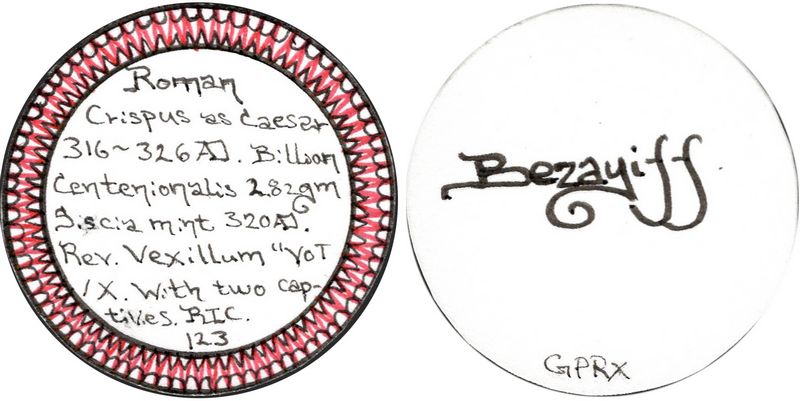 Roman
Crispus as Caesar
316~326AD. Billion
Centenionalis 2.82gm
Siscia mint 320AD.
Rev. Vexillum "VOT
/X. With two cap-
tives. RIC.
123
Bezayiff
GPRX